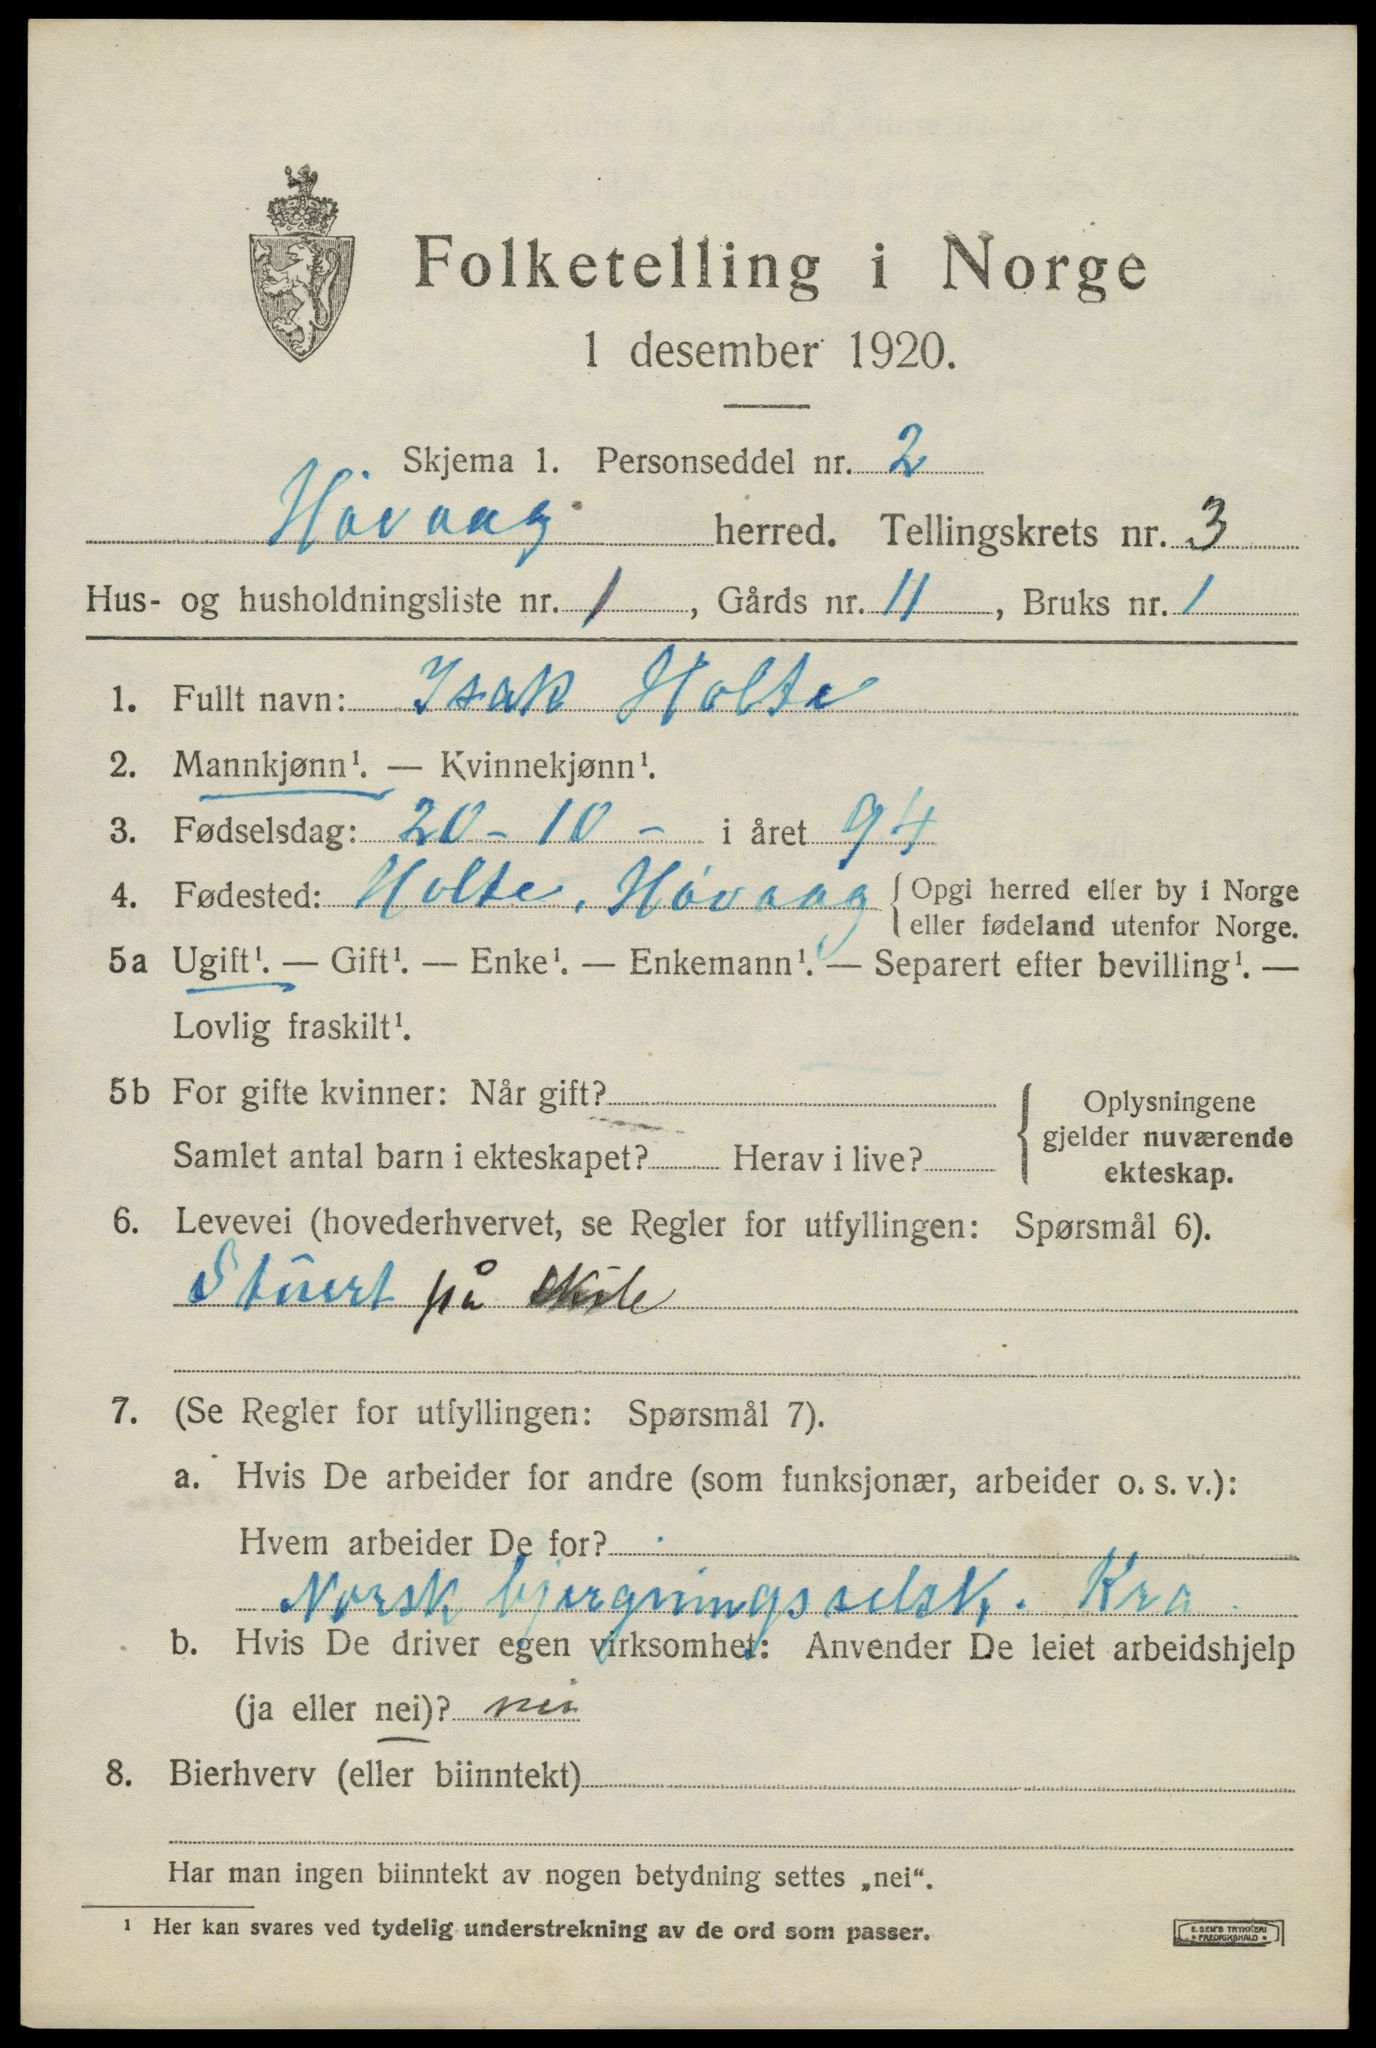 Folketelling i Norge
1 desember 1920.
Skjema 1. Personseddel nr. 2
Høvaag herred. Tellingskrets nr. 3
Hus- og husholdningsliste nr. 1, Gårds nr. 11, Bruks nr. 1
1. Fullt navn: Isak Holte
2. Mannkjønn¹. — Kvinnekjønn¹.
3. Fødselsdag: 20 - 10 - i året 94
4. Fødested: Holte, Høvaag { Opgi herred eller by i Norge
eller fødeland utenfor Norge.
5a Ugift¹. — Gift¹. — Enke¹. — Enkemann¹. — Separert efter bevilling¹. —
Lovlig fraskilt¹.
5b For gifte kvinner: Når gift?
Samlet antal barn i ekteskapet? Herav i live?
{ Oplysningene
gjelder nuværende
ekteskap.
6. Levevei (hovederhvervet, se Regler for utfyllingen: Spørsmål 6).
Stuert på
7. (Se Regler for utfyllingen: Spørsmål 7).
a. Hvis De arbeider for andre (som funksjonær, arbeider o. s. v.):
Hvem arbeider De for?
Norsk bjergningsselsk. Kra.
b. Hvis De driver egen virksomhet: Anvender De leiet arbeidshjelp
(ja eller nei)? nei
8. Bierhverv (eller biinntekt)
Har man ingen biinntekt av nogen betydning settes „nei“.
¹ Her kan svares ved tydelig understrekning av de ord som passer.
E. SEM'S TRYKKERI
FREDRIKSHALD